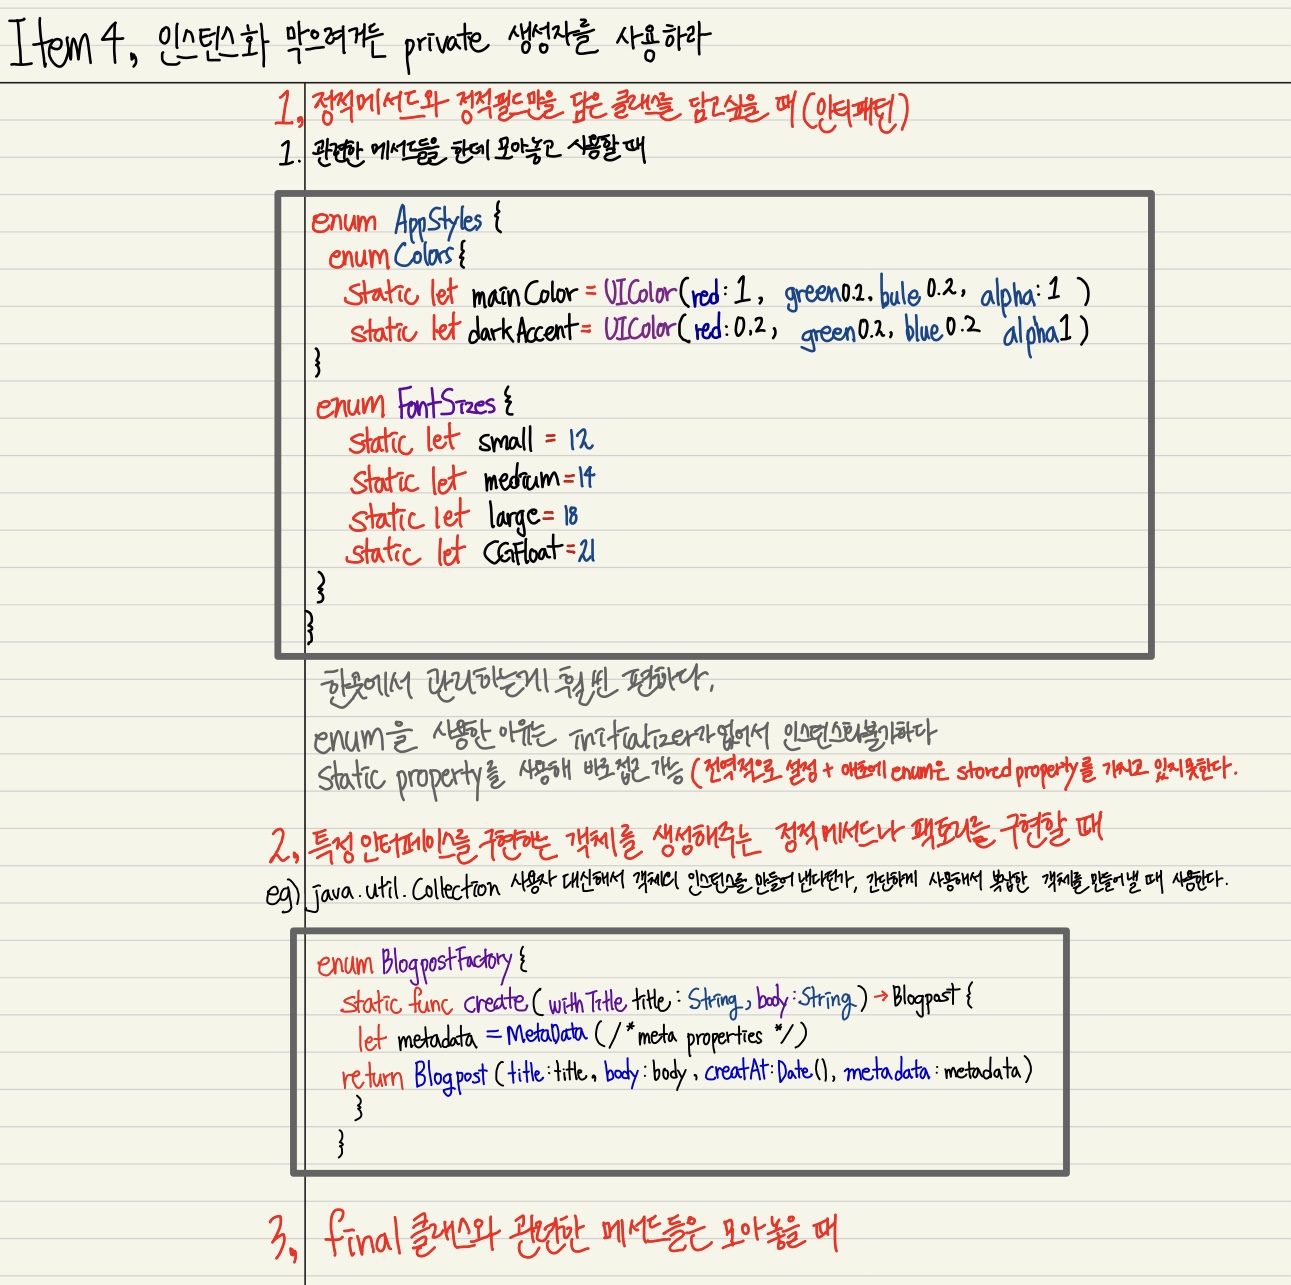 Item 4, 인스턴스화 막으려거든 private 생성자를 사용하라
1, 정적메서드와 정적필드만을 담은 클래스를 담고싶을 때 (안티패턴)
1. 관련한 메서드들을 한데 모아놓고 사용할 때
enum AppStyles {
enum Colors {
static let mainColor = UIColor(red: 1, green 0.2, bule 0.2, alpha: 1 )
static let darkAccent = UIColor(red: 0.2, green 0.2, blue 0.2 alpha 1 )
}
enum FontSizes {
static let small = 12
static let medium = 14
static let large = 18
static let CGFloat = 21
}
}
한곳에서 관리하는게 훨씬 편하다.
enum을 사용한 이유는 initializer가 없어서 불가하다
static property를 사용해 바로접근 가능 (전역적으로 설정 + 애초에 enum은 stored property를 가지고 있지못한다.
2, 특정 인터페이스를 구현하는 객체를 생성해주는 정적메서드나 팩토리를 구현할 때
eg) java.util.Collection 사용자 대신해서 객체의 인스턴스를 만들어 낸다던가, 간단하게 사용해서 복잡한 객체를 만들어낼 때 사용한다.
enum BlogpostFactory {
static func create( withTitle title: String, body: String) → Blogpost {
let metadata = MetaData (/*meta properties */)
return Blogpost (title: title, body: body, creatAt: Date(), metadata: metadata)
}
}
3, final 클래스와 관련한 메서드들은 모아놓을 때